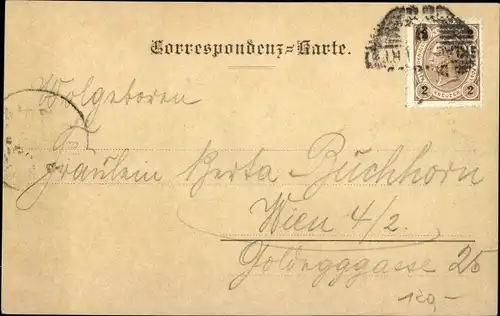 Correspondenz-Karte.
2 KREUZER 2
Wolgeboren
Fräulein Berta Buchhorn
Wien 4/2.
Goldegggasse 25
120,-